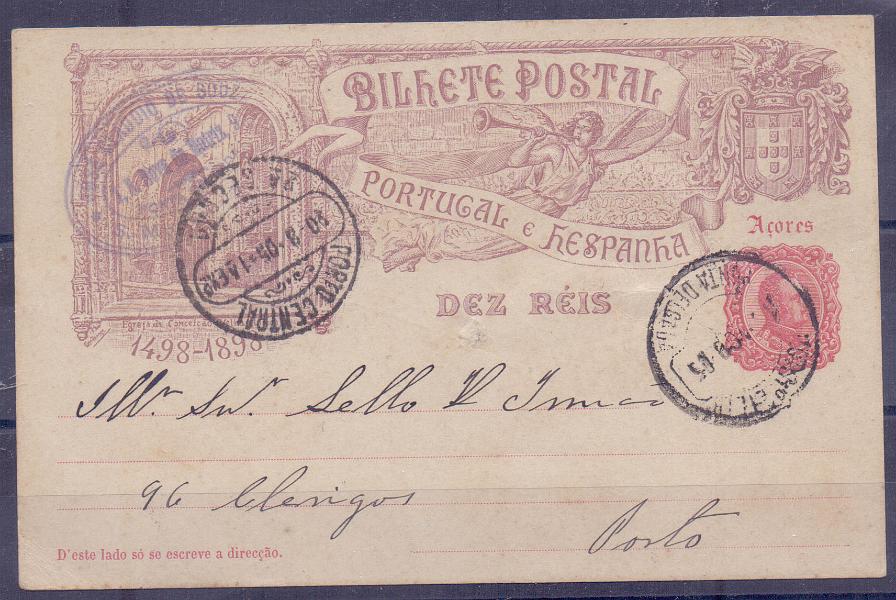 BILHETE POSTAL
PORTUGAL E HESPANHA
Açores
DEZ RÉIS
Egreja da Conceição
1498-1898
PORTO CENTRAL
PONTA DELGADA
Ill.mo Snr. Sello & Irmão
96 Clerigos
Porto
D'este lado só se escreve a direcção.